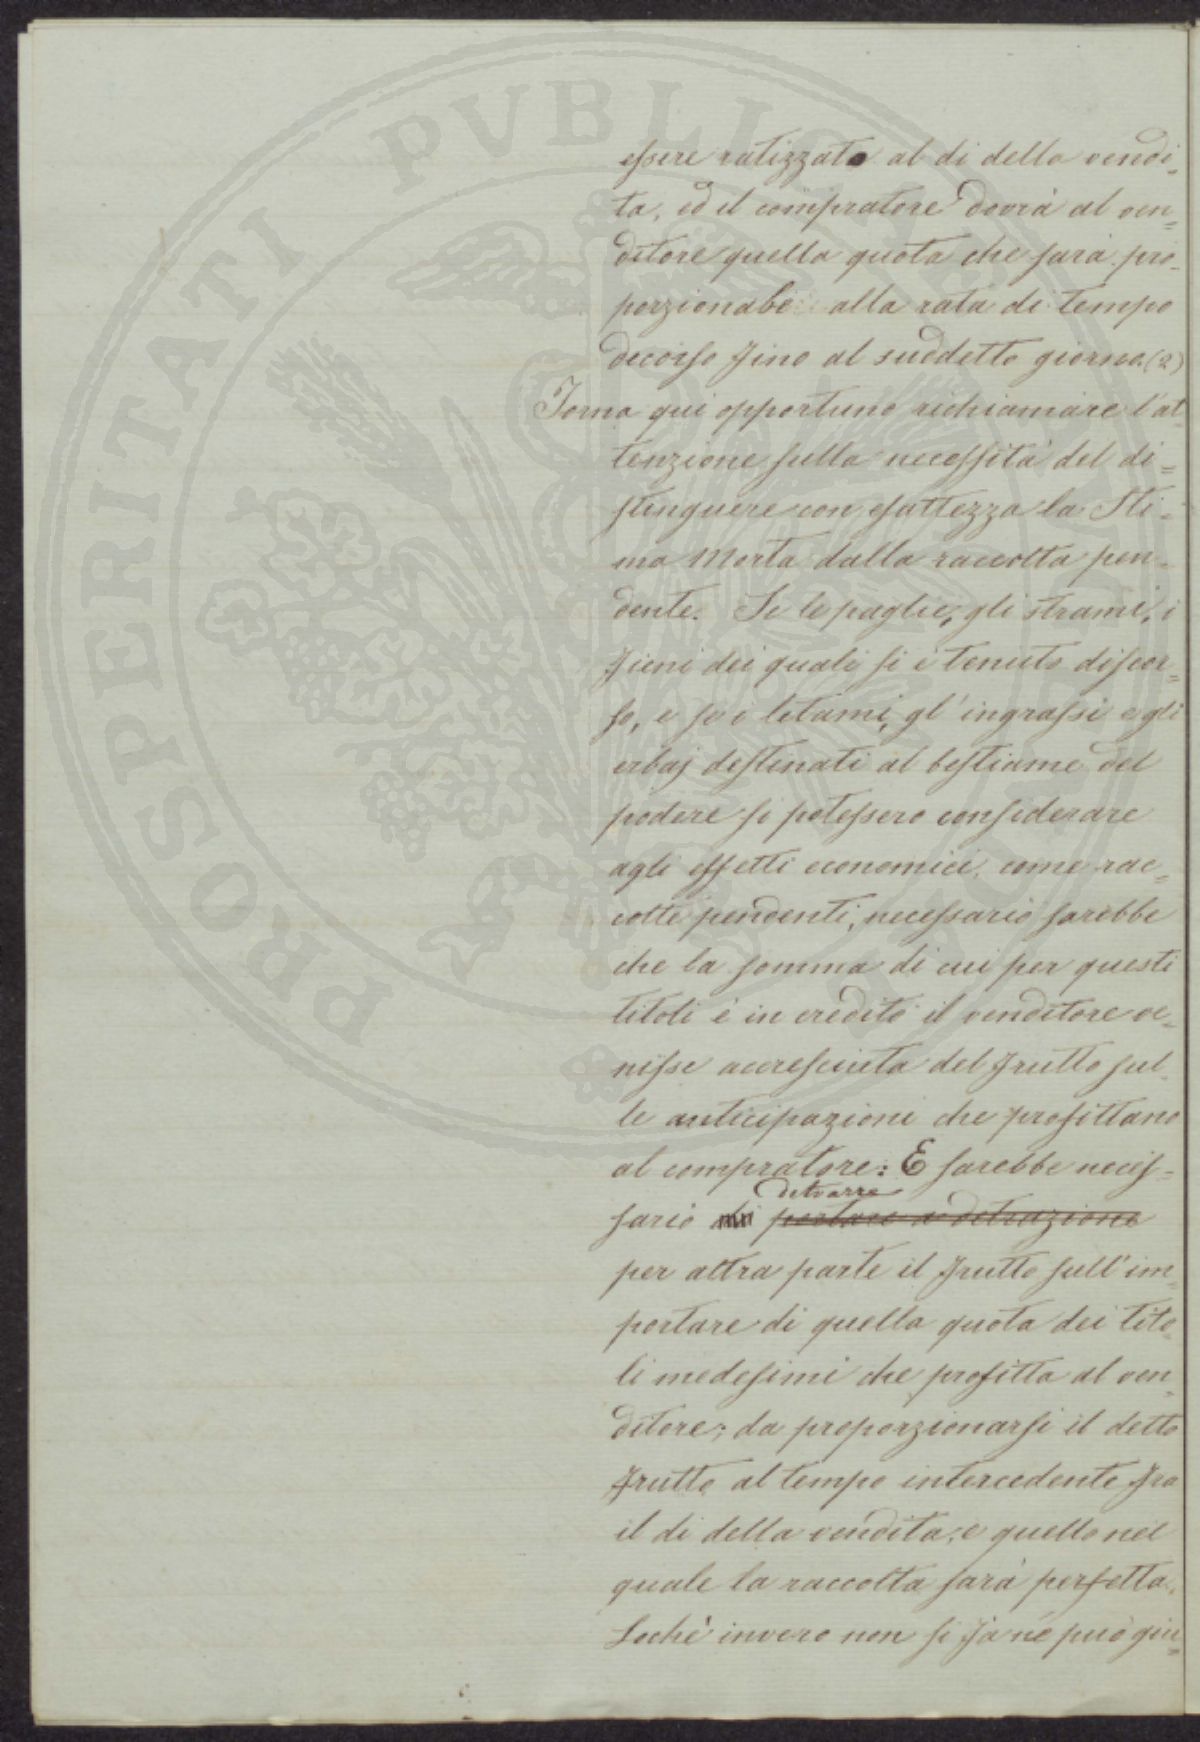 PROSPERITATI PVBLICAE
essere ratizzato al di della vendi-
ta, ed il compratore dovrà al ven=
ditore quella quota che sarà pro-
porzionale alla rata di tempo
decorso fino al suddetto giorno. (2)
Torna qui opportuno richiamare l'at=
tenzione sulla necessità del di=
stinguere con esattezza la Sti-
ma Morta dalla raccolta pen-
dente. Se le paglie, gli strami, i
fieni dei quali si è tenuto discor=
so, e se i letami, gl'ingrassi e gli
erbaj destinati al bestiame del
podere si potessero considerare
agli effetti economici, come rac=
colte pendenti, necessario sarebbe
che la somma di cui per questi
titoli è in credito il venditore ve=
nisse accresciuta del frutto sul-
le anticipazioni che profittano
al compratore: E sarebbe neces-
detrarre
sario portare a detrazione
per altra parte il frutto sull'im=
portare di quella quota dei tito=
li medesimi che profitta al ven=
ditore; da proporzionarsi il detto
frutto al tempo intercedente fra
il di della vendita, e quello nel
quale la raccolta sarà perfetta.
Lochè invero non si fa nè può giu=